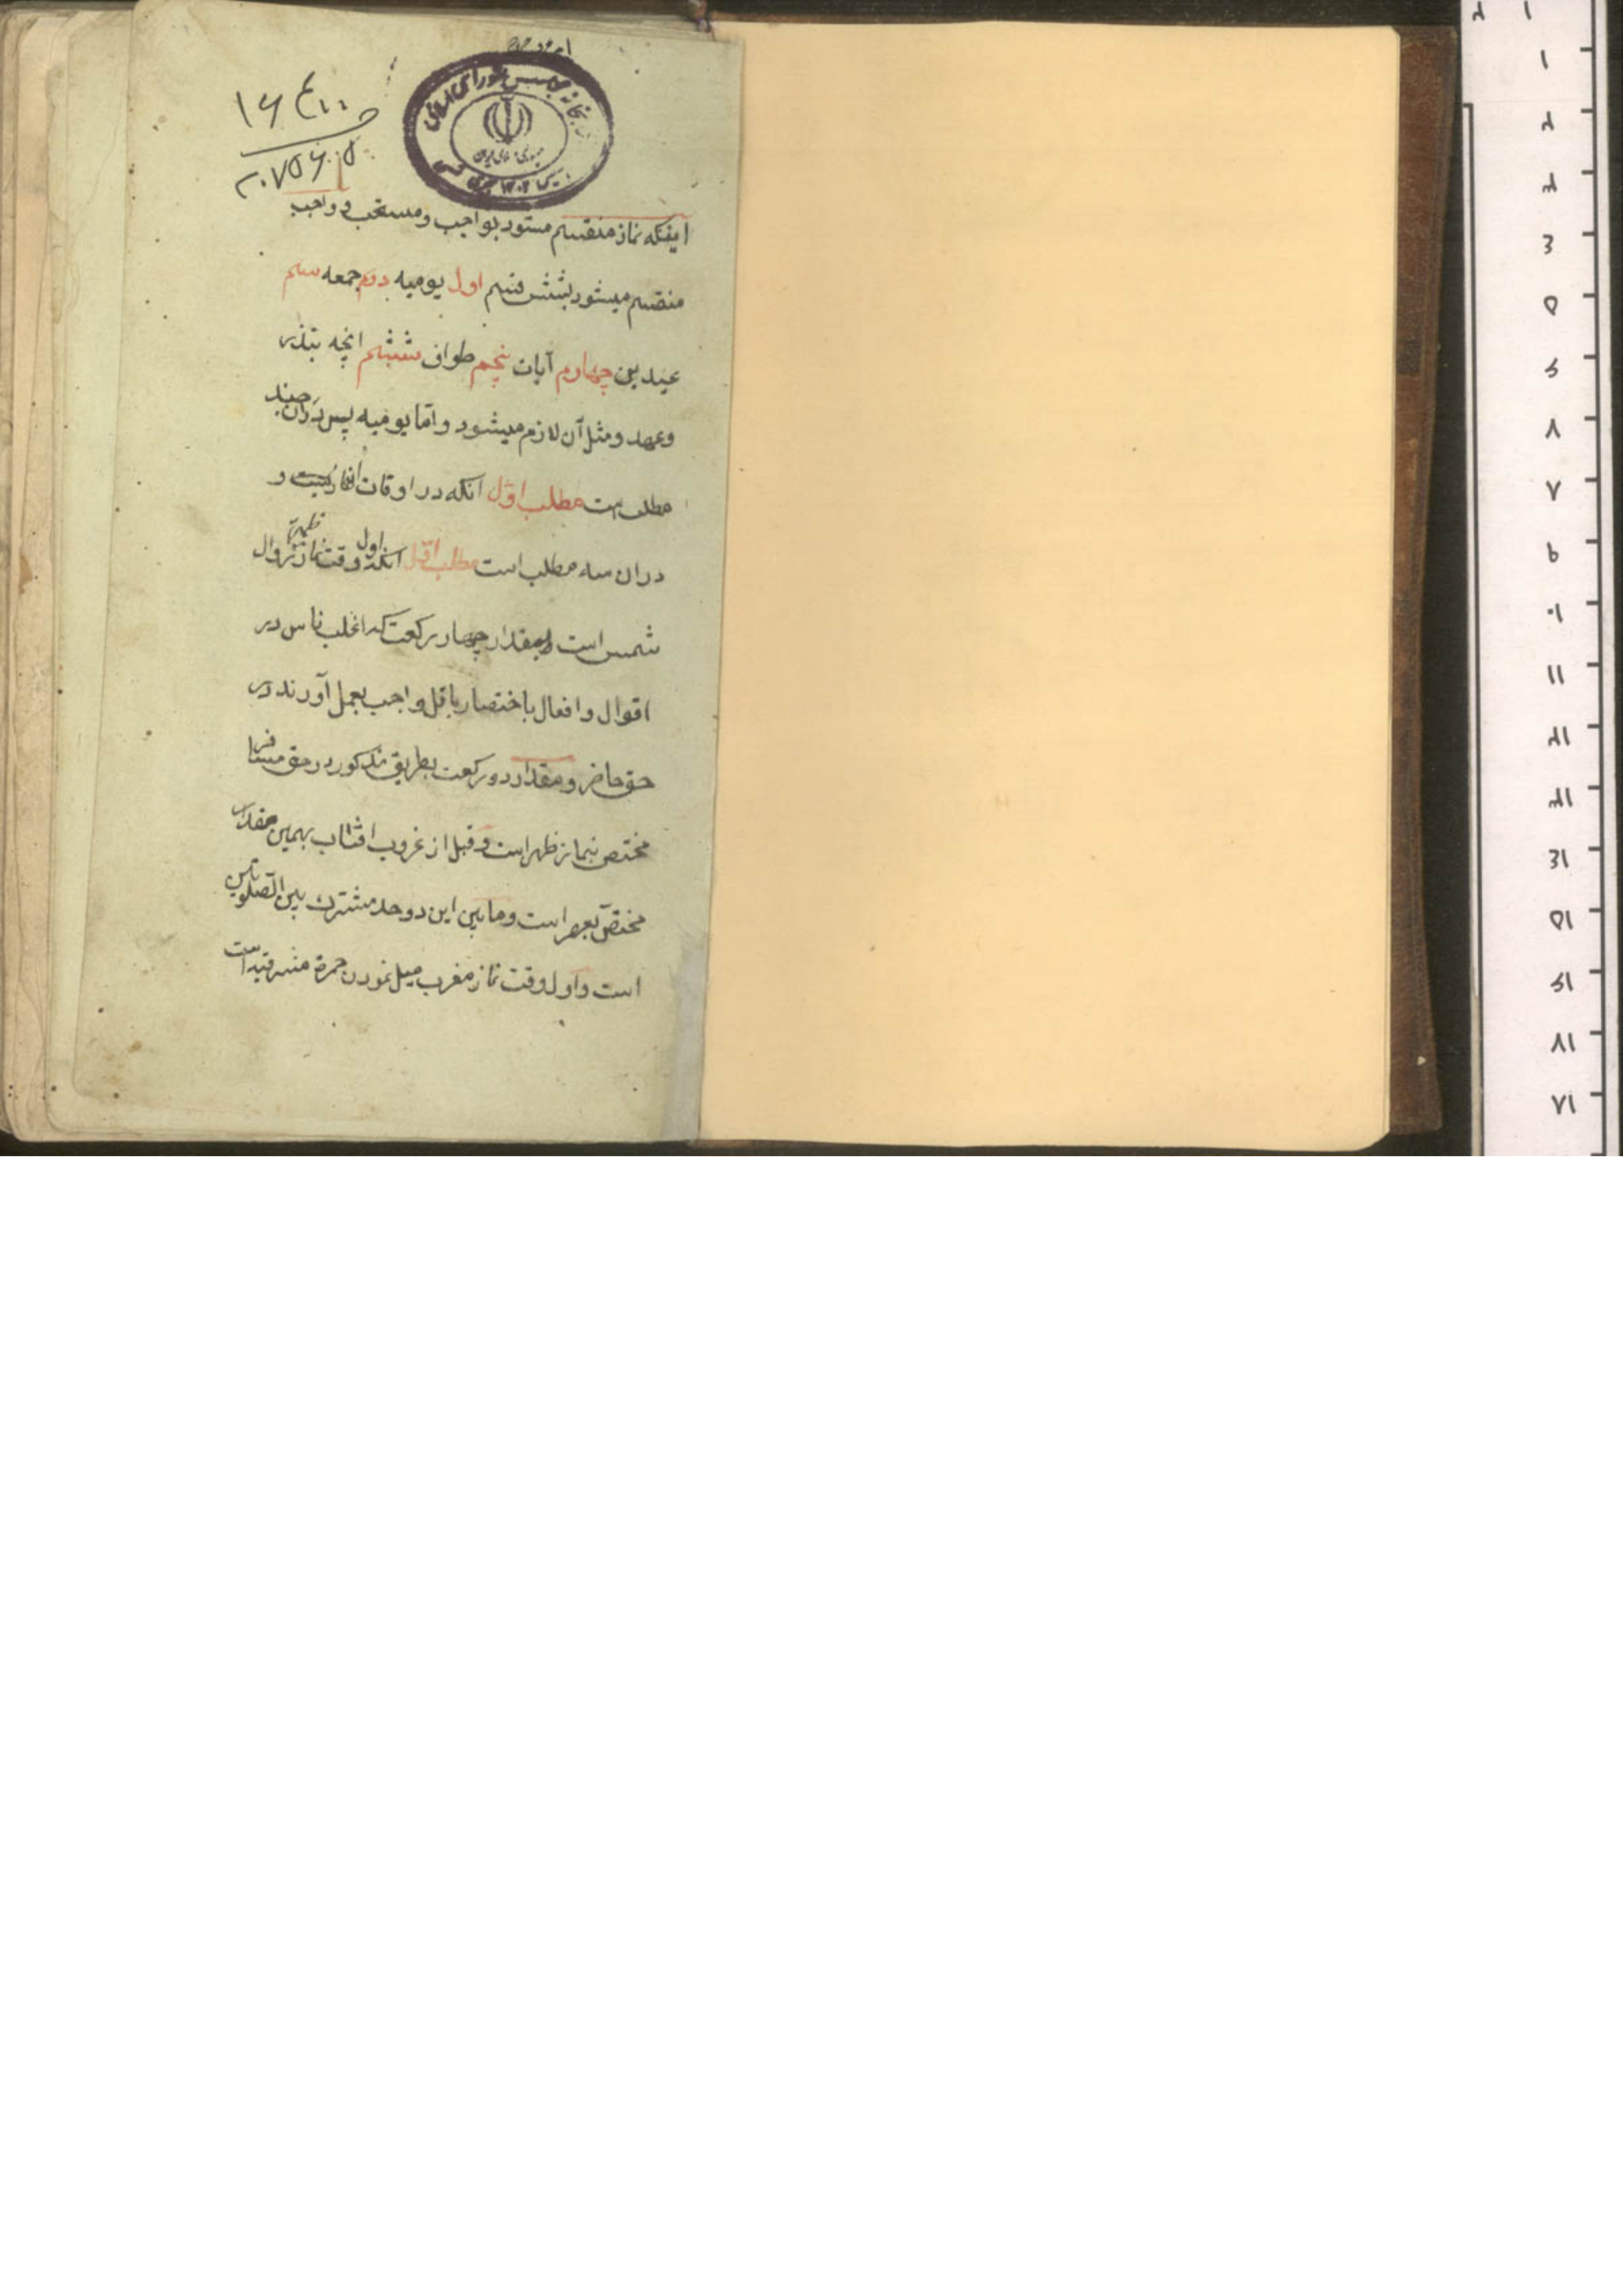 ۱۶۴۱۰۰
۲۰۷۵۶۰۵
اینکه نماز منقسم میشود بواجب و مستحب و واجب
منقسم میشود بشش قسم اول یومیه دوم جمعه سیم
عیدین چهارم آیات پنجم طواف ششم انچه بنذر
وعهد و مثل آن لازم میشود و اما یومیه پس دران چند
مطلب است مطلب اول انکه در اوقات و
دران سه مطلب است مطلب اول انکه اول وقت نماز ظهر زوال
شمس است و بمقدار چهار رکعت که اغلب ناس در
اقوال و افعال باختصار باقل واجب بعمل آورند در
حق حاضر و مقدار دو رکعت بطریق مذکور در حق مسافر
مختص بنماز ظهر است و قبل از غروب افتاب بهمین مقدار
مختص بعصر است و مابین این دو حد مشترک بین الصلوتین
است و اول وقت نماز مغرب میل نمودن حمرة مشرقیه است